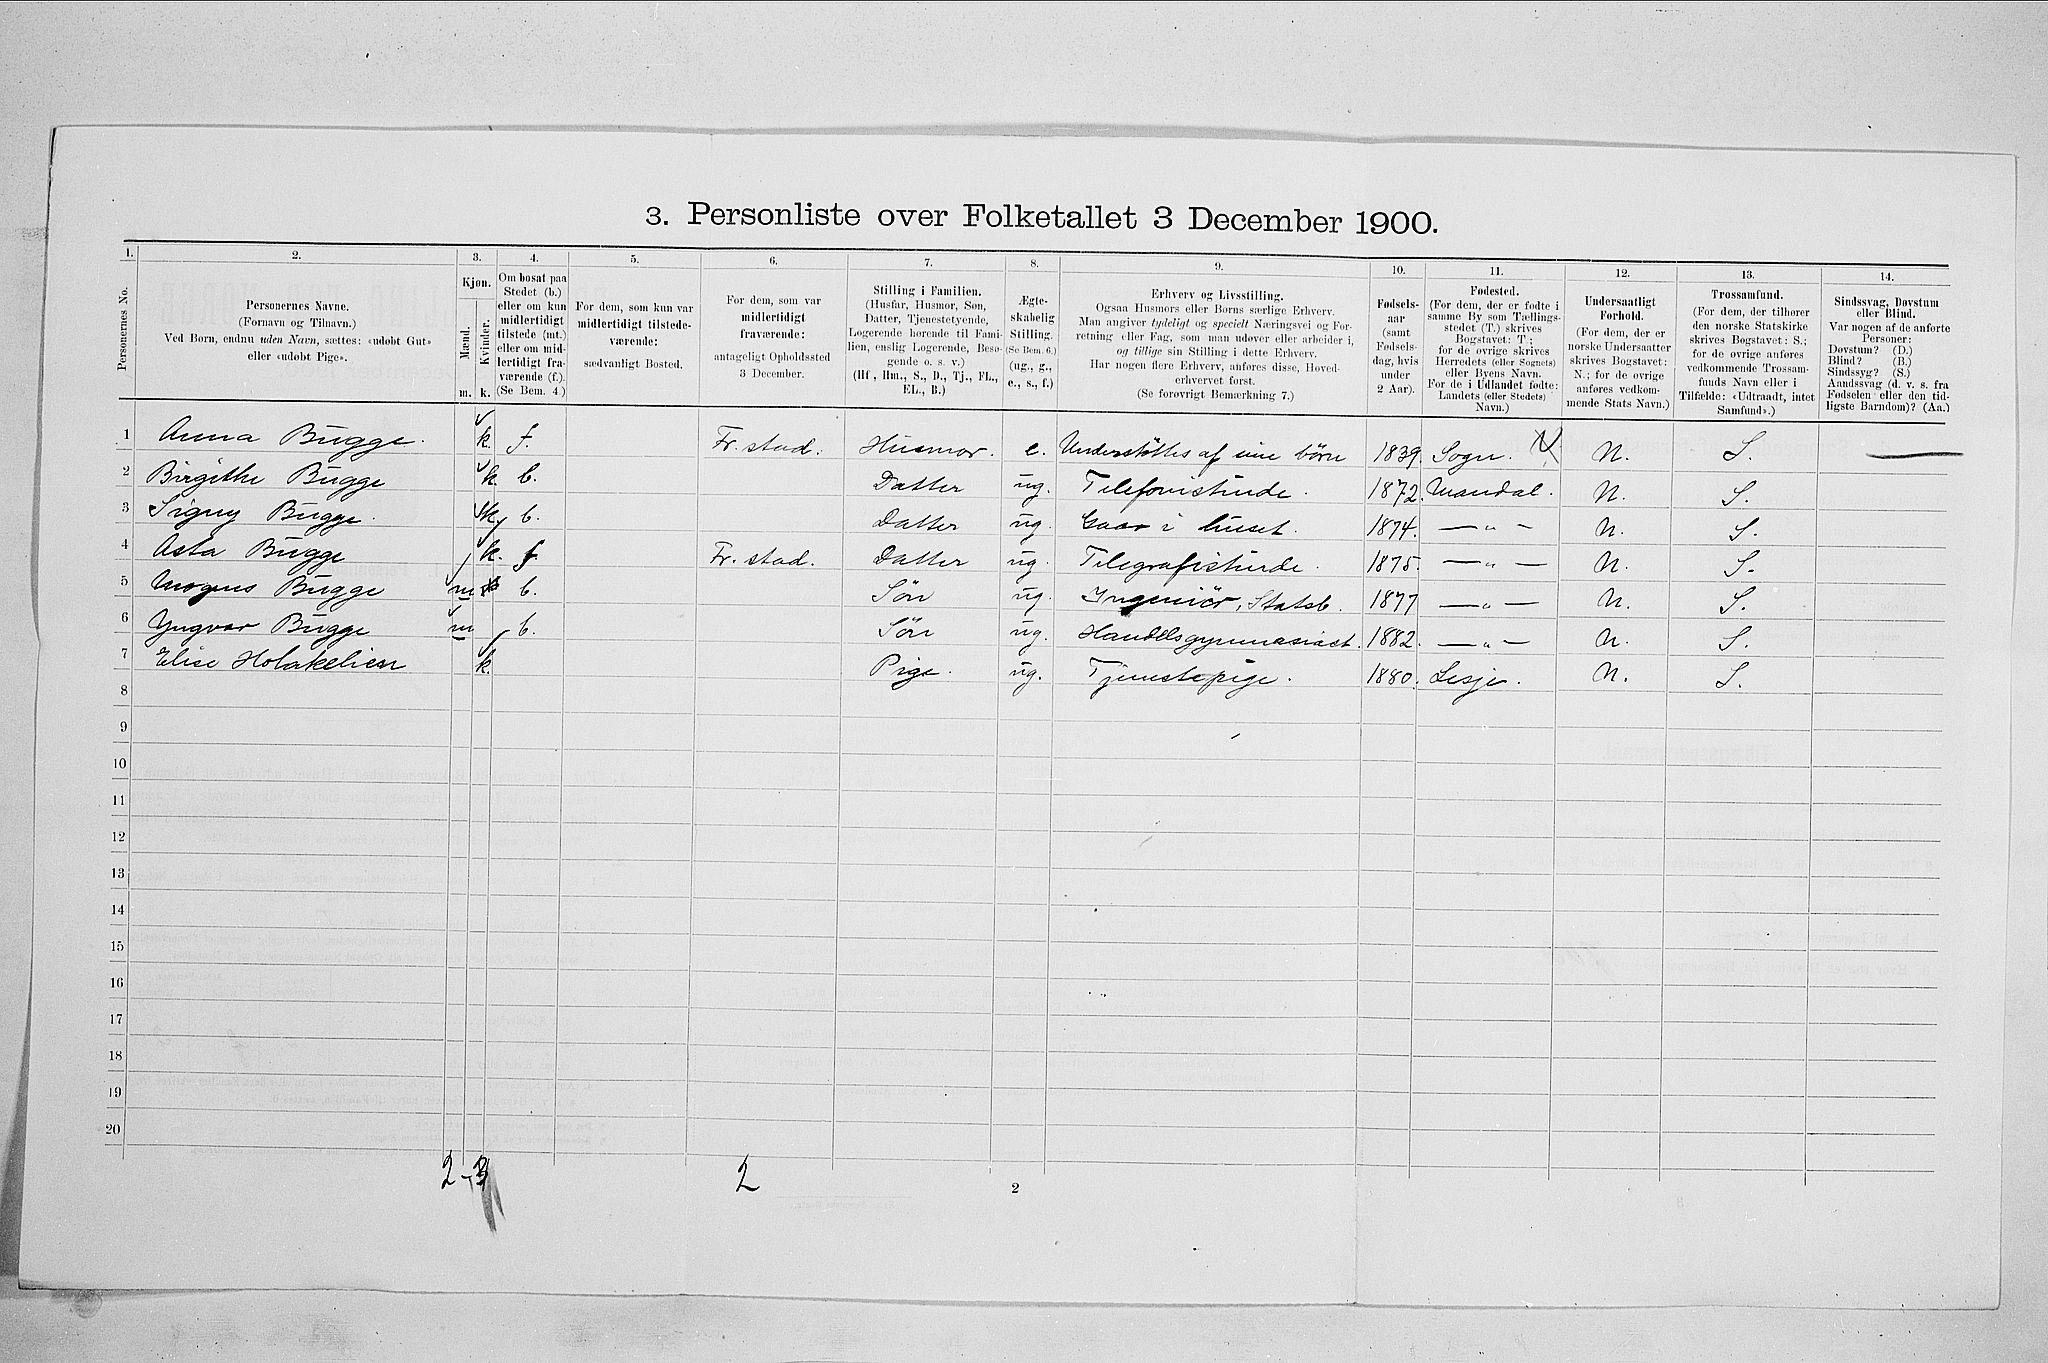 3. Personliste over Folketallet 3 December 1900.
1. 2. 3. 4. 5. 6. 7. 8. 9. 10. 11. 12. 13. 14.
Personernes No.
Personernes Navne.
(Fornavn og Tilnavn.)
Ved Børn, endnu uden Navn, sættes: «udøbt Gut»
eller «udøbt Pige».
Kjøn.
Mænd.
Kvinder.
m. k.
Om bosat paa
Stedet (b.)
eller om kun
midlertidigt
tilstede (mt.)
eller om mid-
lertidigt fra-
værende (f.).
(Se Bem. 4.)
For dem, som kun var
midlertidigt tilstede-
værende:
sædvanligt Bosted.
For dem, som var
midlertidigt
fraværende:
antageligt Opholdssted
3 December.
Stilling i Familien.
(Husfar, Husmor, Søn,
Datter, Tjenestetyende,
Logerende hørende til Fami-
lien, enslig Logerende, Besø-
gende o. s. v.)
(Hf., Hm., S., D., Tj., FL.,
EL., B.)
Ægte-
skabelig
Stilling.
(Se Bem. 6.)
(ug., g.,
e., s., f.)
Erhverv og Livsstilling.
Ogsaa Husmors eller Børns særlige Erhverv.
Man angiver tydeligt og specielt Næringsvei og For-
retning eller Fag, som man udøver eller arbeider i,
og tillige sin Stilling i dette Erhverv.
Har nogen flere Erhverv, anføres disse, Hoved-
erhvervet først.
(Se forøvrigt Bemærkning 7.)
Fødsels-
aar
(samt
Fødsels-
dag, hvis
under
2 Aar).
Fødested.
(For dem, der er fødte i
samme By som Tællings-
stedet (T.) skrives
Bogstavet: T;
for de øvrige skrives
Herredets (eller Sognets)
eller Byens Navn.
For de i Udlandet fødte:
Landets (eller Stedets)
Navn.)
Undersaatligt
Forhold.
(For dem, der er
norske Undersaatter
skrives Bogstavet:
N.; for de øvrige
anføres vedkom-
mende Stats Navn.)
Trossamfund.
(For dem, der tilhører
den norske Statskirke
skrives Bogstavet: S.;
for de øvrige anføres
vedkommende Trossam-
funds Navn eller i
Tilfælde: «Udtraadt, intet
Samfund».)
Sindssvag, Døvstum
eller Blind.
Var nogen af de anførte
Personer:
Døvstum? (D.)
Blind? (B.)
Sindssyg? (S.)
Aandssvag (d. v. s. fra
Fødselen eller den tid-
ligste Barndom)? (Aa.)
1 Anna Bugge. k. f. Fr. stad. Husmor. e. Understöttes af sine börn 1839. Sogn. N. S.
2 Birgithe Bugge k. b. Datter ug. Telefonistinde. 1872. Mandal. N. S.
3 Signy Bugge. k. b. Datter ug. Gaar i huset. 1874. — „ — N. S.
4 Asta Bugge k. f. Fr. stad. Datter ug. Telegrafistinde. 1875. — „ — N. S.
5 Mogens Bugge m b. Sön ug. Ingeniör, Statsb. 1877 — „ — N. S.
6 Yngvar Bugge m b. Sön ug. Handelsgymnasiast. 1882. — „ — N. S.
7 Elise k. Pige. ug. Tjenestepige. 1880. Lesje. N. S.
8
9
10
11
12
13
14
15
16
17
18
19
20
2-3 2
2